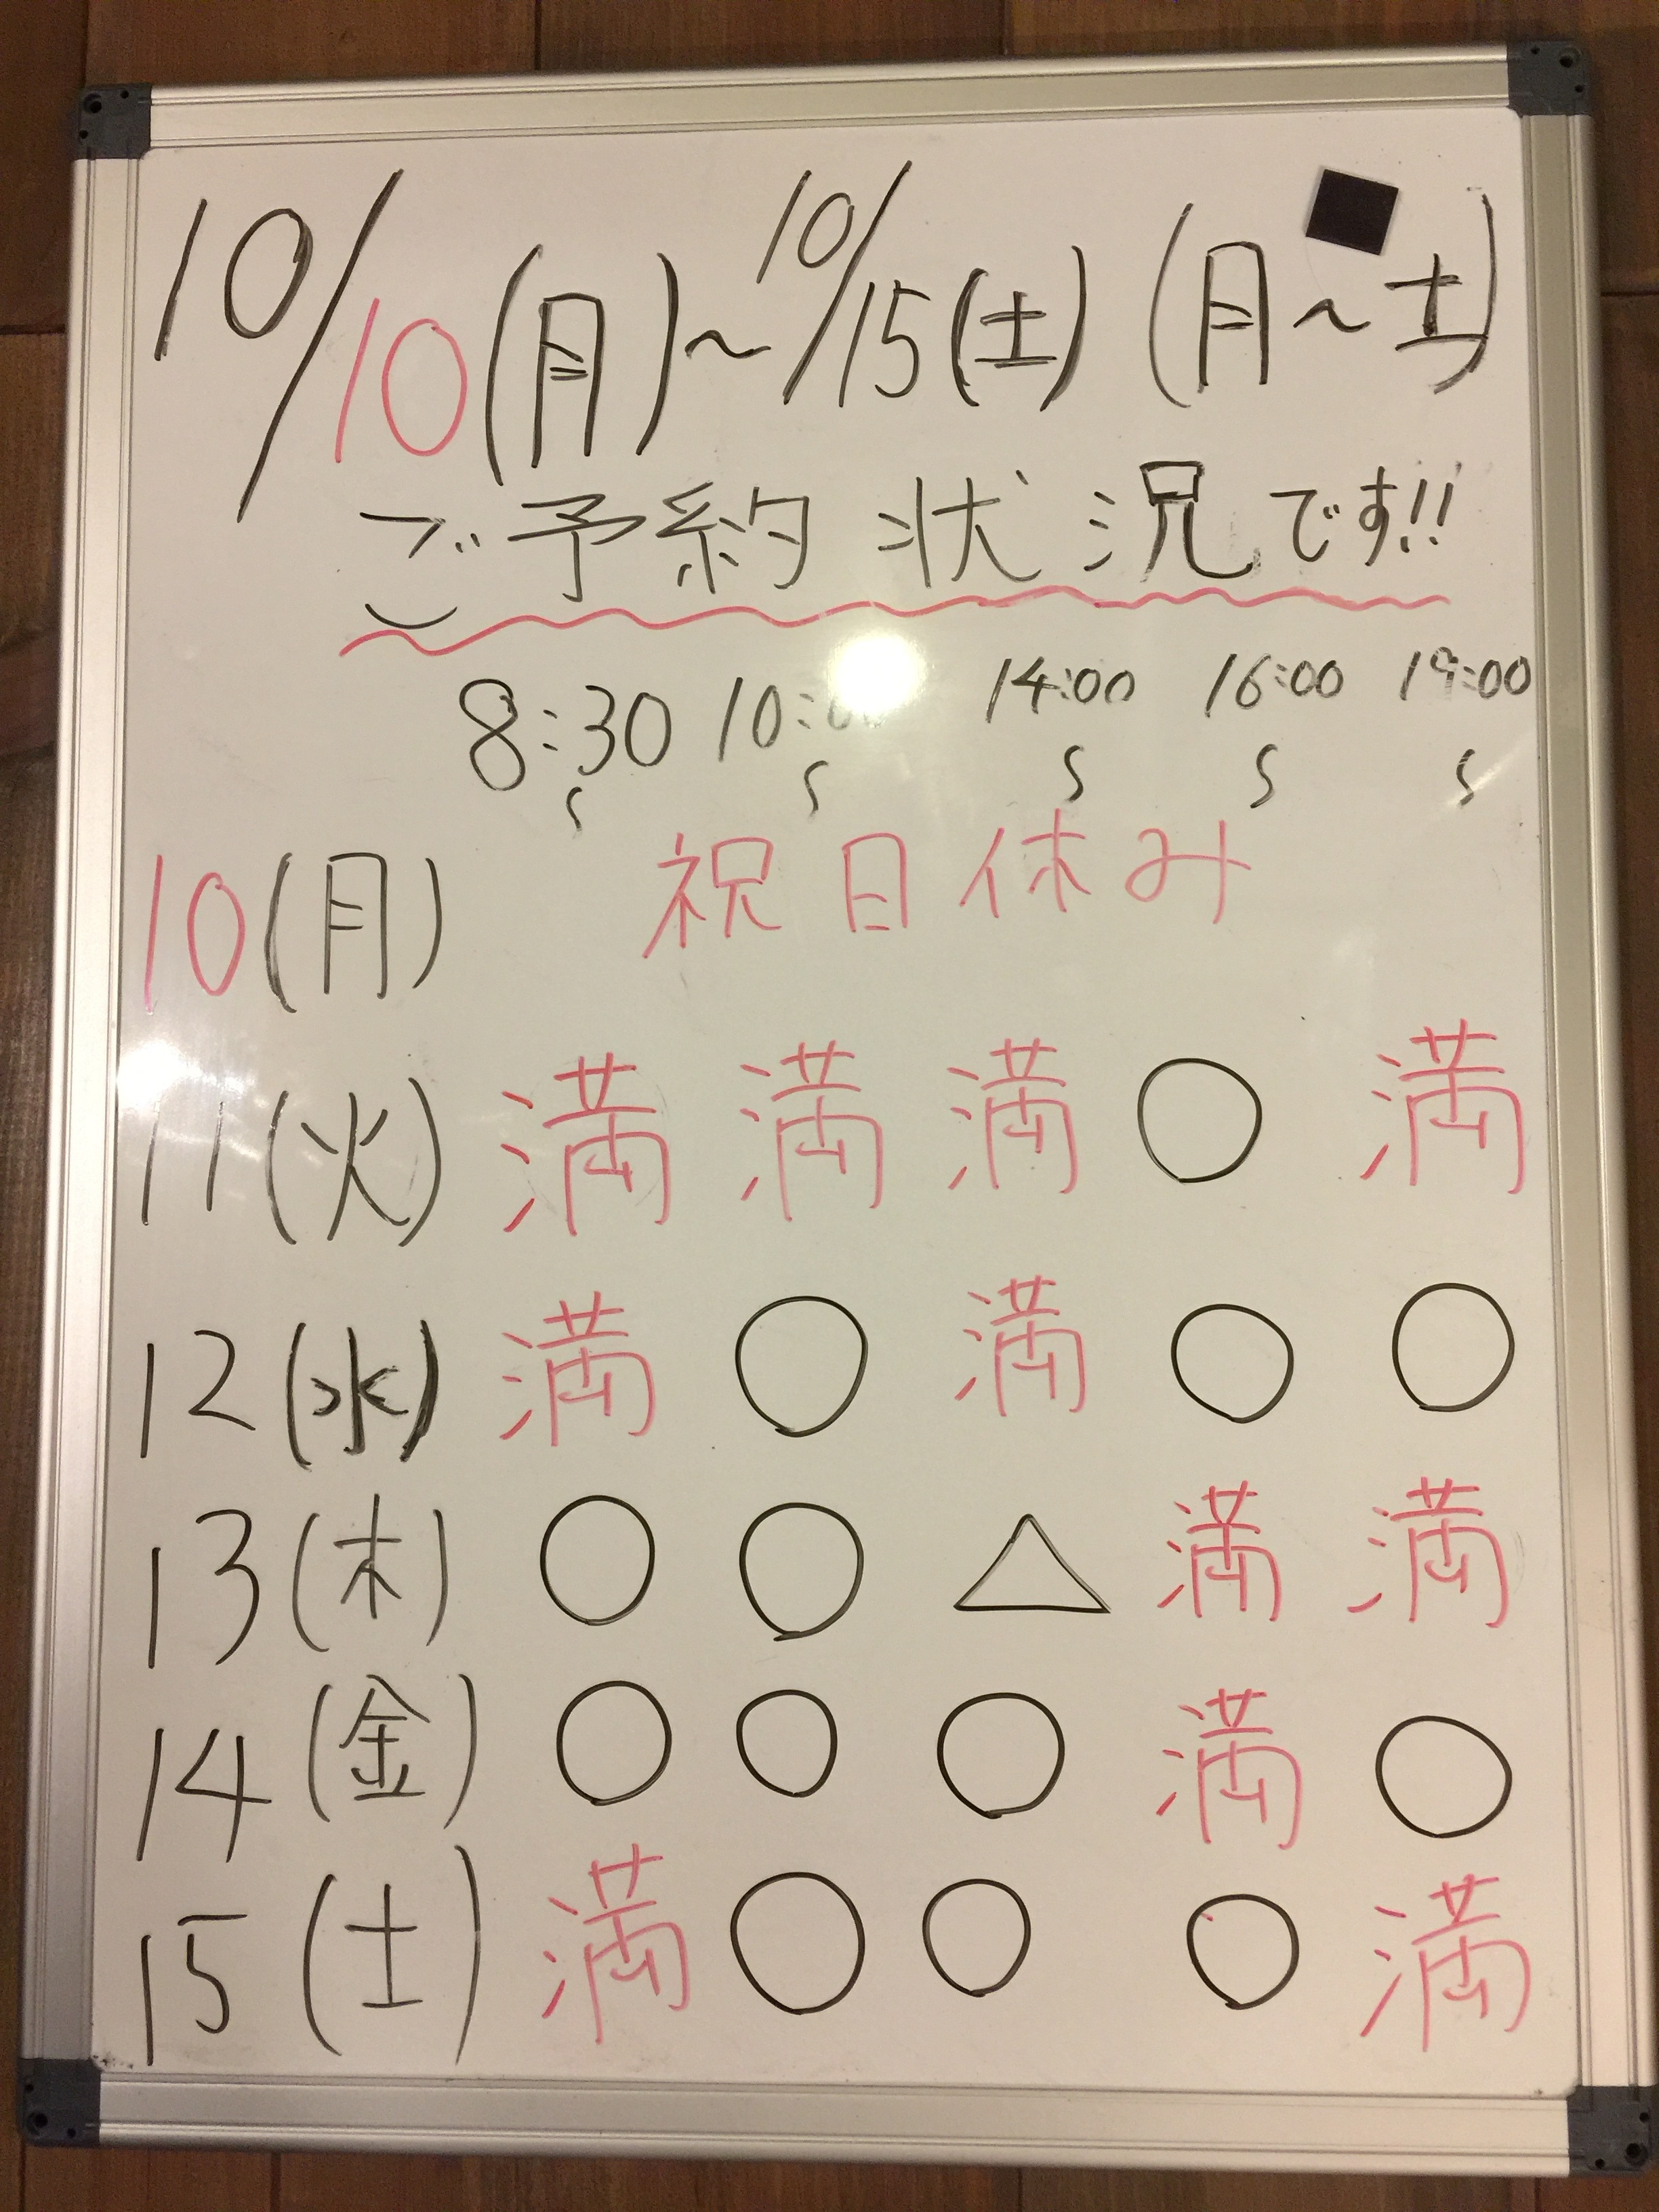 10/10(月)～10/15(土) (月～土)
ご予約状況です!!
8:30～ 10:00～ 14:00～ 16:00～ 19:00～
10(月) 祝日休み
11(火) 満 満 満 ○ 満
12(水) 満 ○ 満 ○ ○
13(木) ○ ○ △ 満 満
14(金) ○ ○ ○ 満 ○
15(土) 満 ○ ○ ○ 満